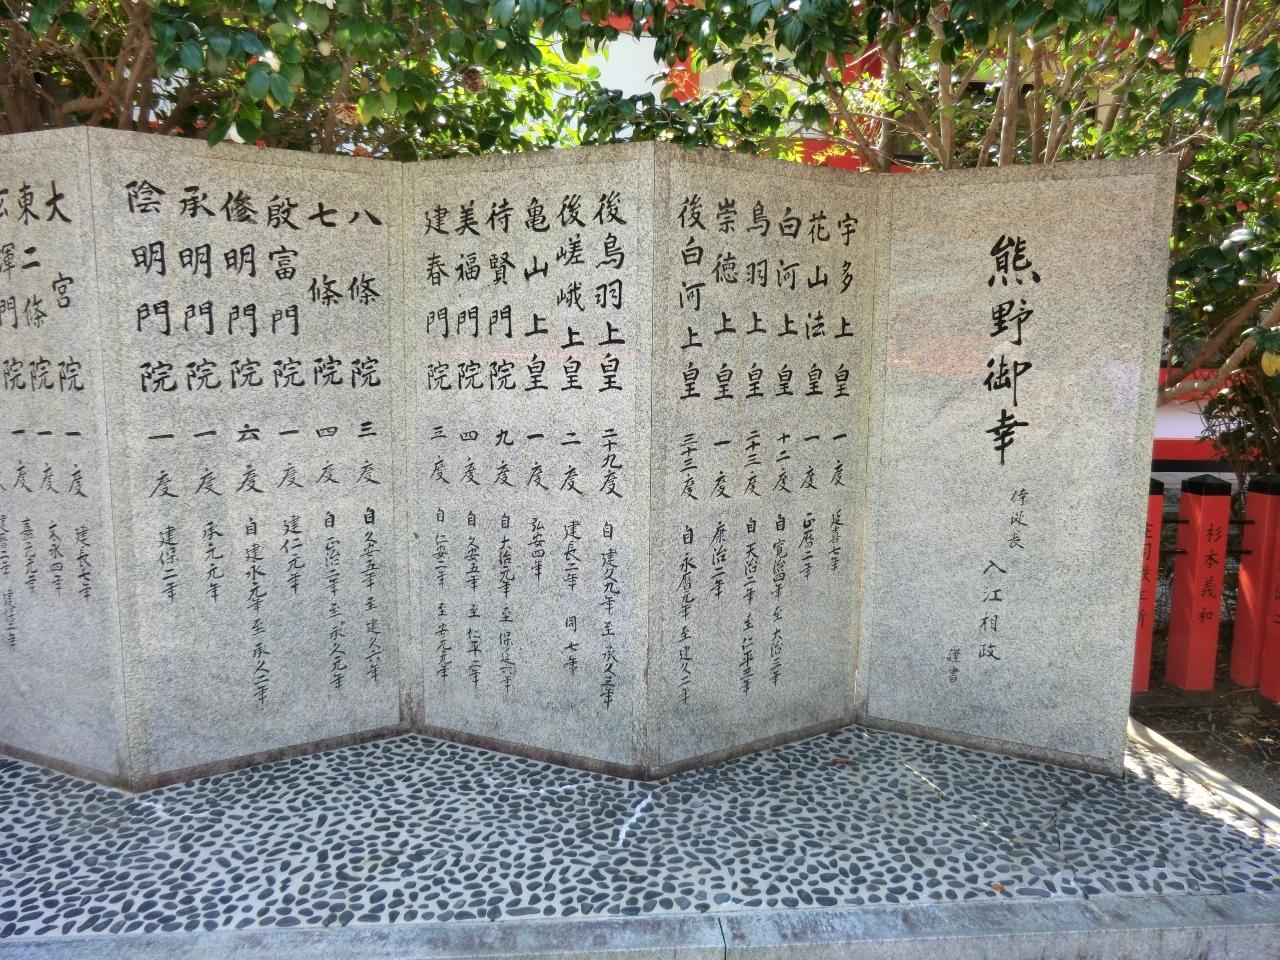 熊野御幸
侍従長
入江相政
謹書
宇多上皇 一度 延喜七年
花山法皇 一度 正暦二年
白河上皇 十二度 自寛治四年至大治三年
鳥羽上皇 二十三度 自天治二年至仁平三年
崇徳上皇 一度 康治二年
後白河上皇 三十三度 自永暦元年至建久二年
後鳥羽上皇 二十九度 自建久九年至承久三年
後嵯峨上皇 二度 建長二年 同七年
亀山上皇 一度 弘安四年
待賢門院 九度 自大治元年至保延六年
美福門院 四度 自久安五年至仁平二年
建春門院 三度 自仁安二年至安元元年
八條院 三度 自久安五年至建久六年
七條院 四度 自正治二年至承久元年
殷富門院 一度 建仁元年
修明門院 六度 自建永元年至承久二年
承明門院 一度 承元元年
陰明門院 一度 建保二年
大宮院 一度 建長七年
東二條院 一度 文永四年
門院 一度 嘉元元年
杉本義和